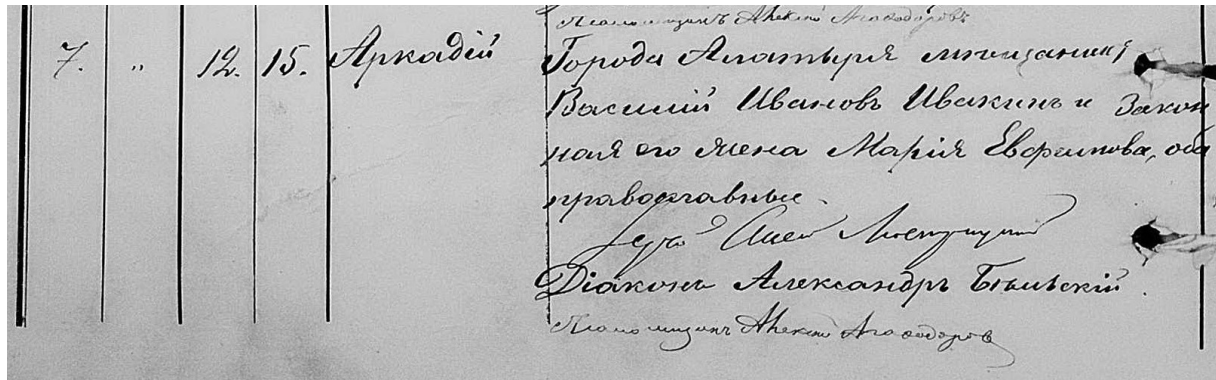 Псаломщикъ Алексій Агаѳодоровъ
7. " 12. 15. Аркадій Города Алатыря мѣщанинъ
Василій Ивановъ Ивакинъ и закон
ная его жена Марія Евфимова, оба
православные.
Діаконъ Александръ Бѣльскій.
Псаломщикъ Алексій Агаѳодоровъ